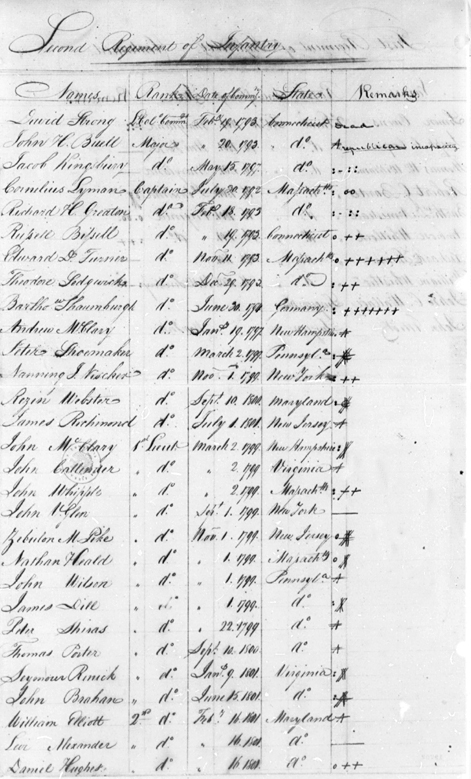 Second Regiment of Infantry
Names Rank Date of Comms. State Remarks
David Strong Lt Col Comm. Feb. 19, 1793. Connecticut dead
John H. Buell Major " 20, 1793 do. republican
Jacob Kingsbury do. May 15, 1797. do.
Cornelius Lyman Captain July 20, 1792 Massachts. : oo
Richard H. Greaton do. Feb. 18, 1793 do.
Russell Bissell do. " 19, 1793. Connecticut o ++
Edward D. Turner do. Nov. 11, 1793. Massachts. o ++++++
Theodore Sedgwick do. Dec. 29, 1793. do. : ++
Bartho. Shaumburgh do. June 30, 1794 Germany : +++++++
Andrew McClary do. Jany. 19, 1797 New Hampshire +
Peter Shoemaker do. March 2, 1799. Pennsyla.
Nanning J. Visscher do. Nov. 1, 1799. New York : ++
Rezin Webster do. Sept. 10, 1800. Maryland
James Richmond do. July 1, 1801. New Jersey +
John McClary 1st Lieut March 2, 1799. New Hampshire
John Callender " do. " 2, 1799. Virginia +
John Whipple " do. " 2, 1799. Massachts. : ++
John V. Glen " do. Sept. 1, 1799. New York —
Zebulon M. Pike " do. Nov. 1, 1799. New Jersey
Nathan Heald " do. " 1, 1799. Massachts.
John Wilson " do. " 1, 1799. Pennsyla. +
James Dill " do. " 1, 1799. do.
Peter Shiras " do. " 22, 1799 do. +
Thomas Porter " do. Sept. 10, 1800 do. +
Seymour Renick " do. Jany. 9, 1801. Virginia
John Brahan " do. June 15, 1801. do.
William Elliott 2nd do. Feb. 16, 1801 Maryland +
Levi Alexander " do. " 16, 1801. do. —
Daniel Hughes " do. " 16, 1801. do. o ++